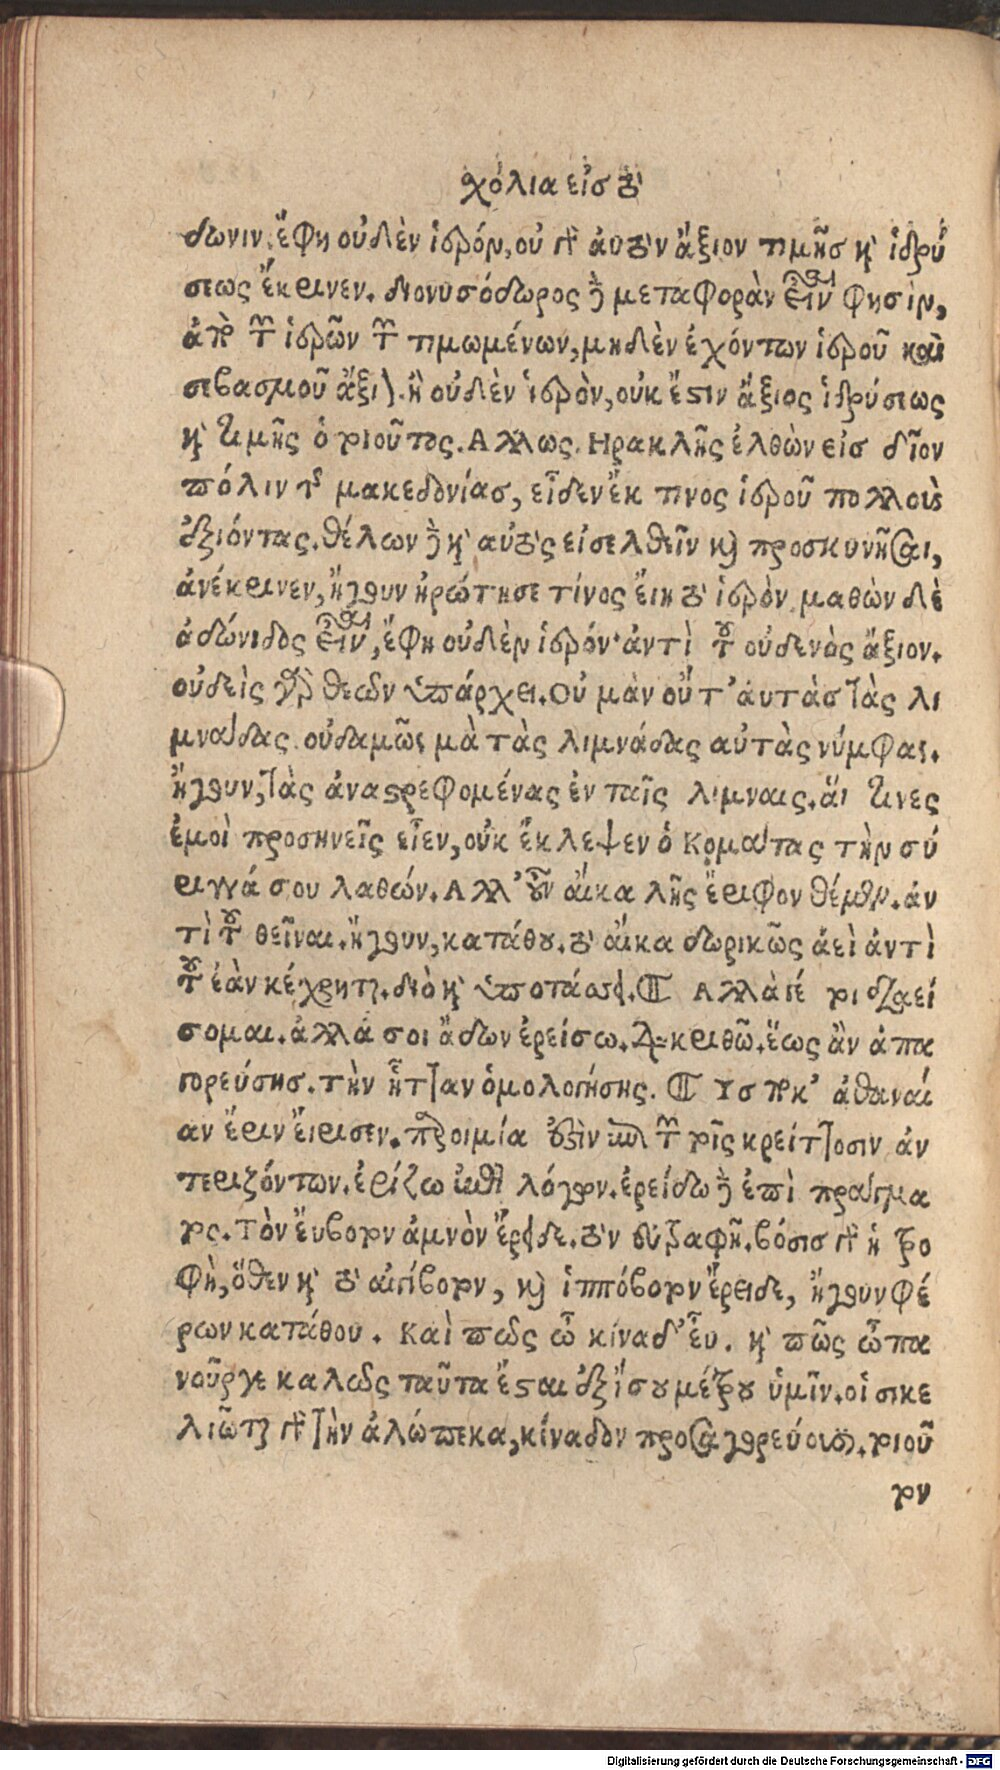 χόλια εἰσ τὸ
δωνιν. ἔφη οὐδὲν ἱερόν, οὐ γὰρ ἀυτὸν ἄξιον τιμῆσ καὶ ἱδρύ
σεως ἔκρινεν. διονυσόδωρος δὲ μεταφορὰν εἶναι φησὶν,
ἀπὸ τῶν ἱερῶν τῶν τιμωμένων, μηδὲν ἐχόντων ἱεροῦ καὶ
σεβασμοῦ ἄξιον. ἢ οὐδὲν ἱερὸν, οὐκ ἔστιν ἄξιος ἱδρύσεως
καὶ τιμῆς ὁ τοιοῦτος. Αλλως. Ηρακλῆς ἐλθὼν εἰσ δῖον
πόλιν τῆς μακεδονίασ, εἶδεν ἔκ τινος ἱεροῦ πολλοὺς
ἐξιόντας. θέλων δὲ καὶ αὐτὸς εἰσελθεῖν καὶ προσκυνῆσαι,
ἀνέκρινεν, ἤγουν ἠρώτησε τίνος ἔιη τὸ ἱερὸν. μαθὼν δὲ
ἀδώνιδος εἶναι, ἔφη οὐδὲν ἱερόν· ἀντὶ τοῦ οὐδενὸς ἄξιον.
οὐδεὶς γὰρ θεῶν ὑπάρχει. Οὐ μὰν οὔτ' ἀυτὰσ τὰς λι
μνάδας. οὐδαμῶς μὰ τὰς λιμνάδας αὐτὰς νύμφας.
ἤγουν, τὰς ἀναστρεφομένας ἐν ταῖς λίμναις. ἅι τινες
ἐμοὶ προσηνεῖς εἶεν, οὐκ ἔκλεψεν ὁ Κομάτας τὴν σύ
ριγγά σου λαθών. Αλλ' ὦν ἄικα λῆς ἔριφον θέμεν. ἀν
τὶ τοῦ θεῖναι. ἤγουν, κατάθου. τὸ ἄικα δωρικῶς ἀεὶ ἀντὶ
τοῦ ἐὰν κέχρηται. διὸ καὶ ὑποτάσσει. ¶ Αλλὰ γέ τοι διαεί
σομαι. ἀλλά σοι ἄδων ἐρείσω. διακριθῶ. ἕως ἂν ἀπα
γορεύσησ. τὴν ἧτταν ὁμολογήσης. ¶ Υσ ποκ' ἀθαναί
αν ἔριν ἔιρισεν. παροιμία ἐστὶν ἐπὶ τῶν τοῖς κρείττοσιν ἀν
τεριζόντων. ἐρίζω ἐπὶ λόγον. ἐρείδω δὲ ἐπὶ πράγμα
τος. Τὸν ἔυβοτον ἀμνὸν ἔρειδε. τὸν εὐτραφῆ. βόσισ γὰρ ἡ τρο
φὴ, ὅθεν καὶ τὸ αἰγίβοτον, καὶ ἱππόβοτον ἔρειδε, ἤγουν φέ
ρων κατάθου. Καὶ πῶς ὦ κίναδ' ἔυ. καὶ πῶς ὦ πα
νοῦργε καλῶς ταῦτα ἔσται ἐξ ἴσου μέτρου ὑμῖν. οἱ σικε
λιῶται γὰρ τὴν ἀλώπεκα, κίναδον προσαγορεύουσι. τοιοῦ
τον
Digitalisierung gefördert durch die Deutsche Forschungsgemeinschaft - DFG